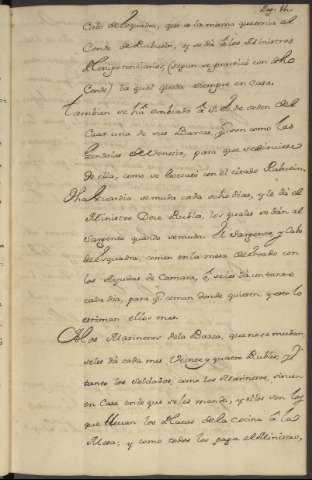 Cabo de Esquadra, que es la misma que tenia el
Conde de Rabutin, y se dà à los Ministros
Plenipotenciarios, (segun se practicò con dho
Conde) la qual queda siempre en Casa.
Tambien se ha embiado à V. E. de orden del
Czar una de sus Barcas, que son como las
Gondolas de Venecia, para que se sirviese
de ella, como se executò con el citado Rabutin.
Dha Guardia se muda cada ocho dias, y le dà el
Ministro Doce Rublos, los quales se dàn al
Sargento quando se muda. El Sargento, y Cabo
de Esquadra, comen en la mesa de Estado con
los Ayudas de Camara, y se les dà un tanto
cada dia, para que coman donde quieren, y esto lo
estiman ellos mas.
A los Marineros de la Barca, que no se mudan,
se les dà cada mes Veinte y quatro Rublos, y
tanto los Soldados, como los Marineros, sirven
en Casa en lo que se les manda, y ellos son los
que llevan los Platos de la Cocina à la
Mesa; y como todos los paga el Ministro,